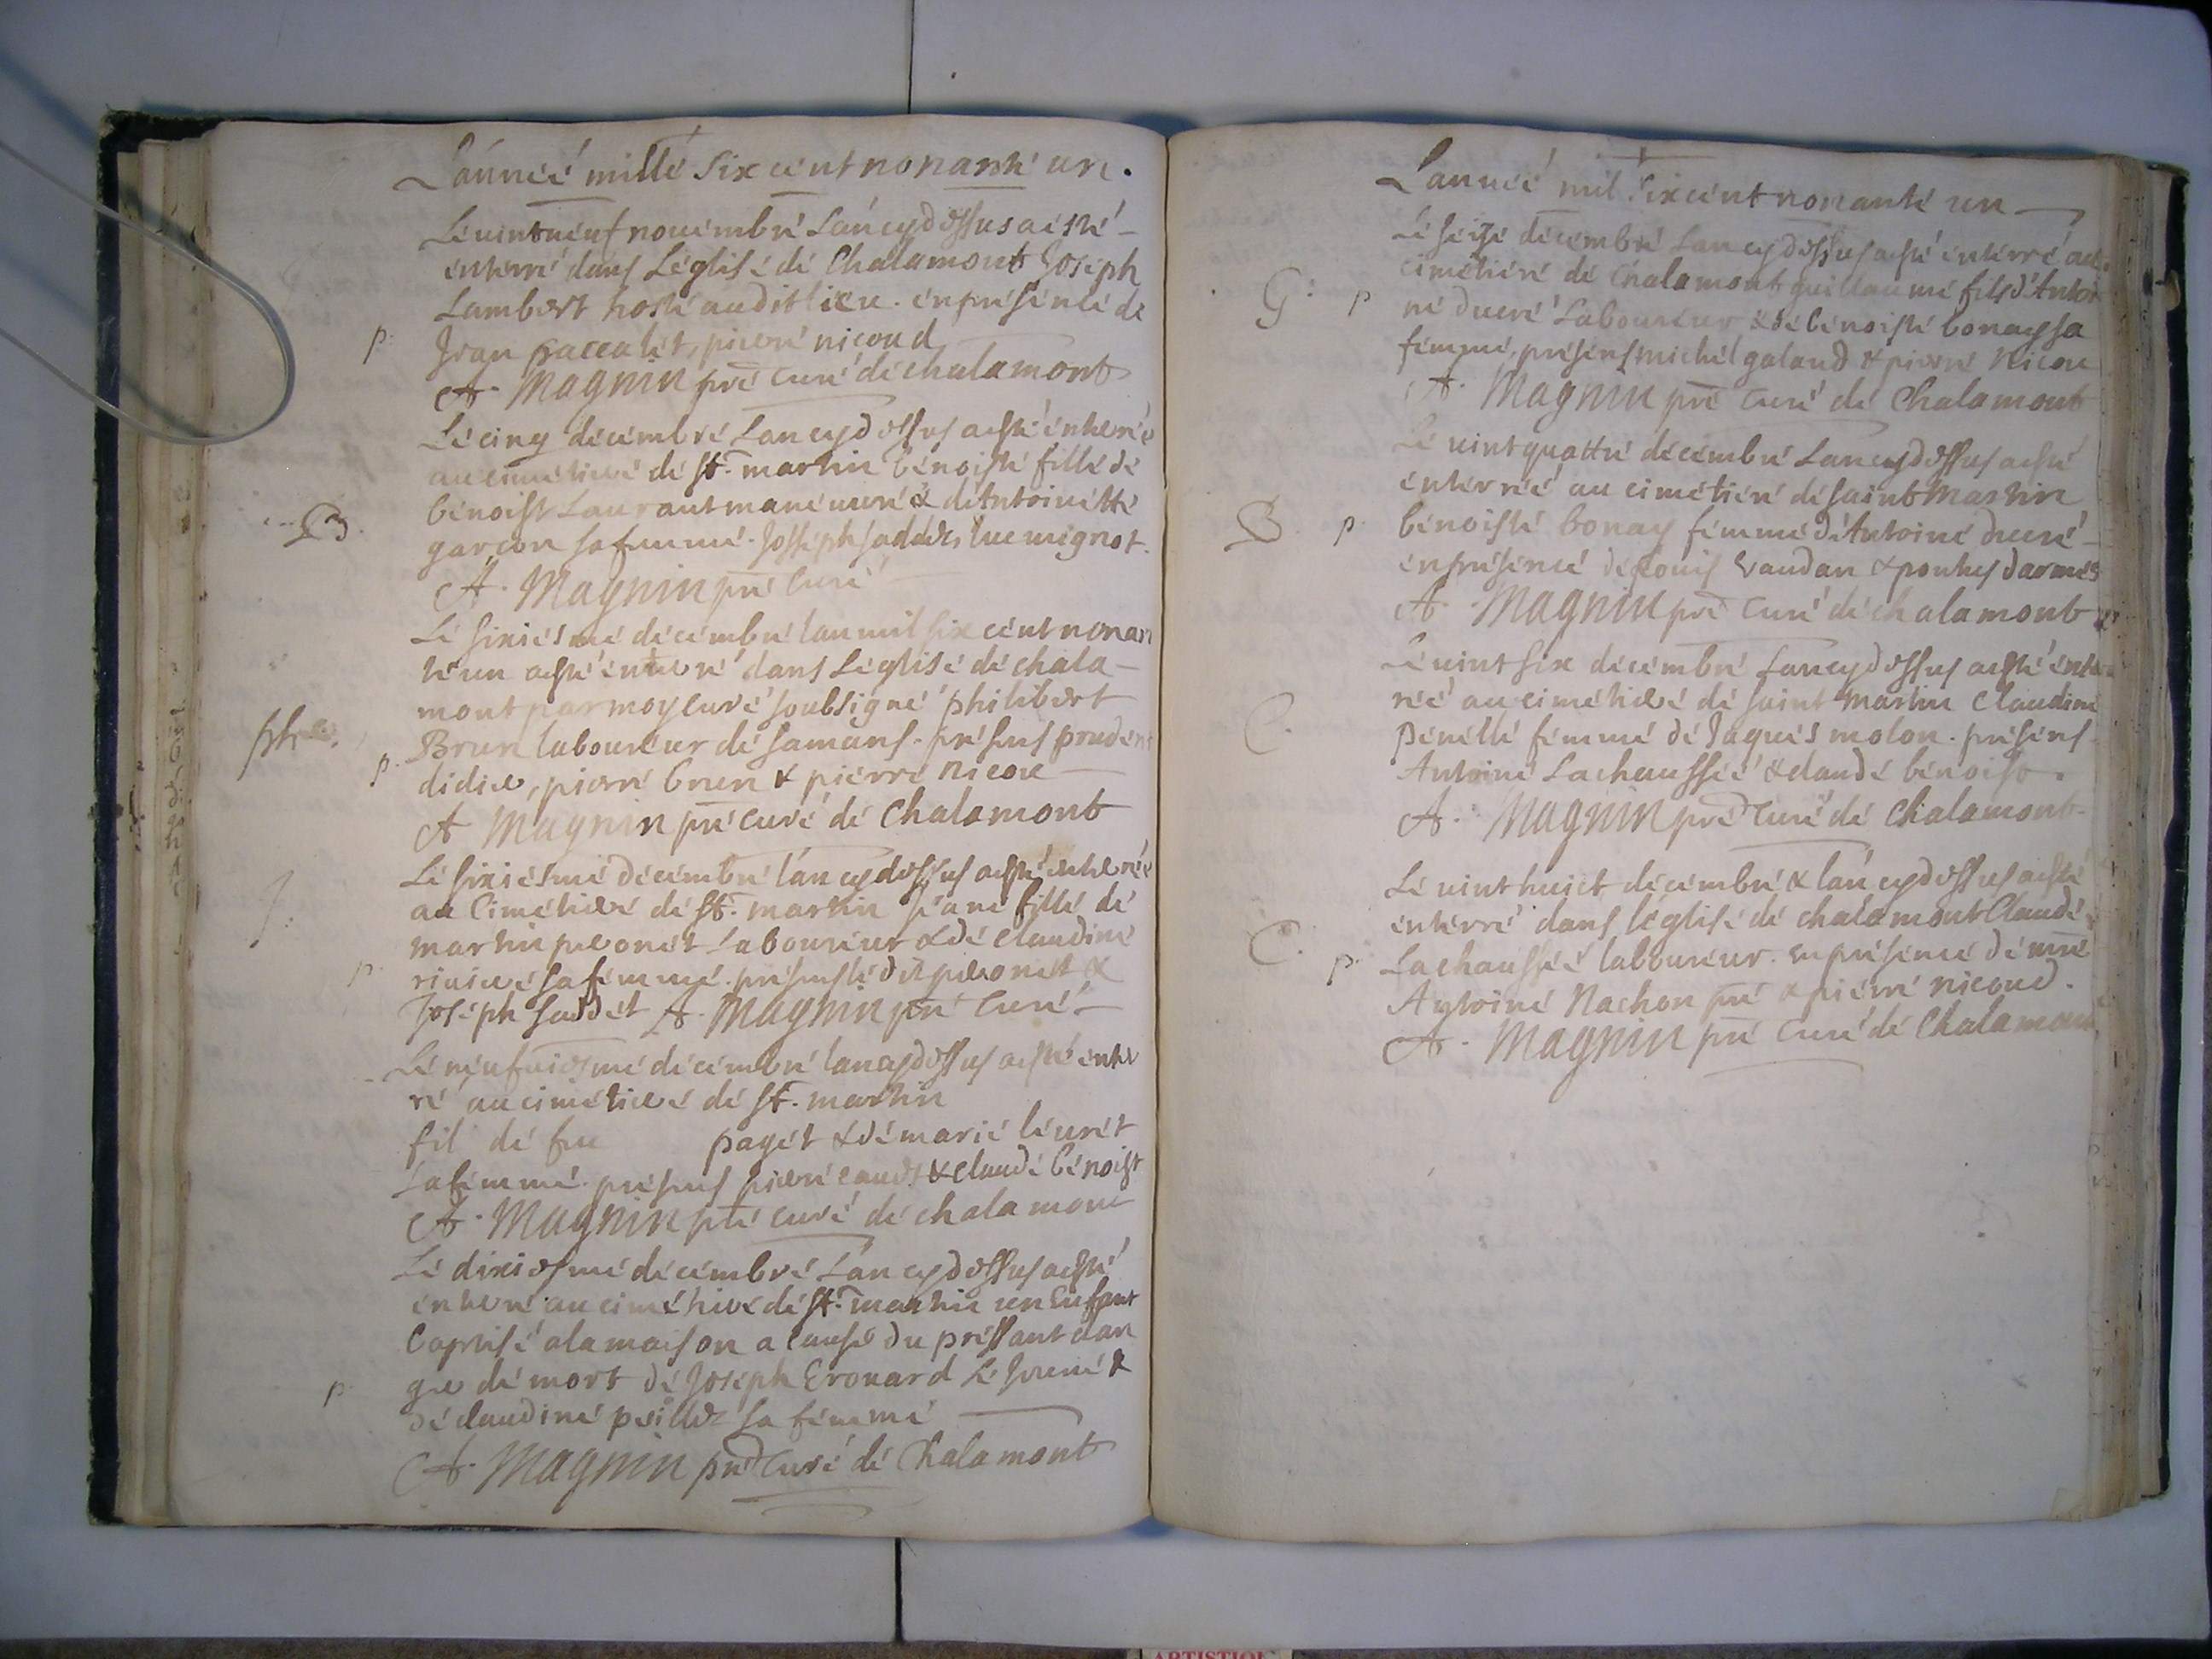 L'année mille six cent nonante un.
Le vintneuf novembre l'an cydessus a esté
enterré dans L'eglise de Chalamont Joseph
Lambert hoste audit lieu. en presence de
p. Jean paccalet, pierre nicoud
A. Magnin pre curé de chalamont
Le cinq decembre L'an cydessus a esté enterée
au cimetiere de st. martin benoiste fille de
benoist Laurant maneuvre & d'Antoinette
B. garcon sa femme. Josseph saddet, luc mignot.
A. Magnin pre Curé
Le sixiesme decembre l'an mil six cent nonan
te un a esté enterré dans L'eglise de chala-
mont par moy curé soubsigné philibert
ph. Brun laboureur de samans. presens pruden
p. didier, pierre brun & pierre nicou
A Magnin pre curé de Chalamont
Le sixiesme decembre l'an cydessus a esté enterée
J. au Cimetiere de st. martin Jeane fille de
martin peronet Laboureur & de claudine
p. riviere sa femme. presens ledit peronet &
Joseph saddet A. Magnin pre Curé
Le neufviesme decembre l'an cydessus a esté enter
ré au cimetiere de st. martin
fil de feu paget & de marie levret
sa femme. presens pierre & claude benoist
A. Magnin pre curé de chalamont
Le dixiesme decembre L'an cydessus a esté
enterré au cimetiere de st. martin un Enfant
baptisé a la maison a cause du pressant dan
p. ger de mort de Joseph Erouard Le Jeune &
de claudine sa femme
A. Magnin pre Curé de Chalamont
L'année mil six cent nonante un
Le seize decembre L'an cydessus a esté enterré au
cimetiere de Chalamont guillaume fils d'Antoi
G. p ne ducré Laboureur & de benoiste bonay sa
femme, presens michel galand & pierre Nicou
A. Magnin pre Curé de Chalamont
Le vintquattre decembre L'an cydessus a esté
enterrée au cimetiere de saint Martin
B. p. benoiste bonay femme d'Antoine ducré
en presence de Louis Vaudan & ponthus darmes
A. Magnin pre Curé de chalamont
Le vint six decembre L'an cydessus a esté enter
rée au cimetiere de saint martin Claudine
C. penelle femme de Jaques molon. presens
Antoine Lachaussée & claude benoist.
A. Magnin pre Curé de Chalamont
Le vint huict decembre & l'an cydessus a esté
enterré dans l'eglise de chalamont Claude
C. p. Lachaussée laboureur. en presence de mre
Antoine Nachon pre & pierre nicoud.
A. Magnin pre Curé de Chalamont